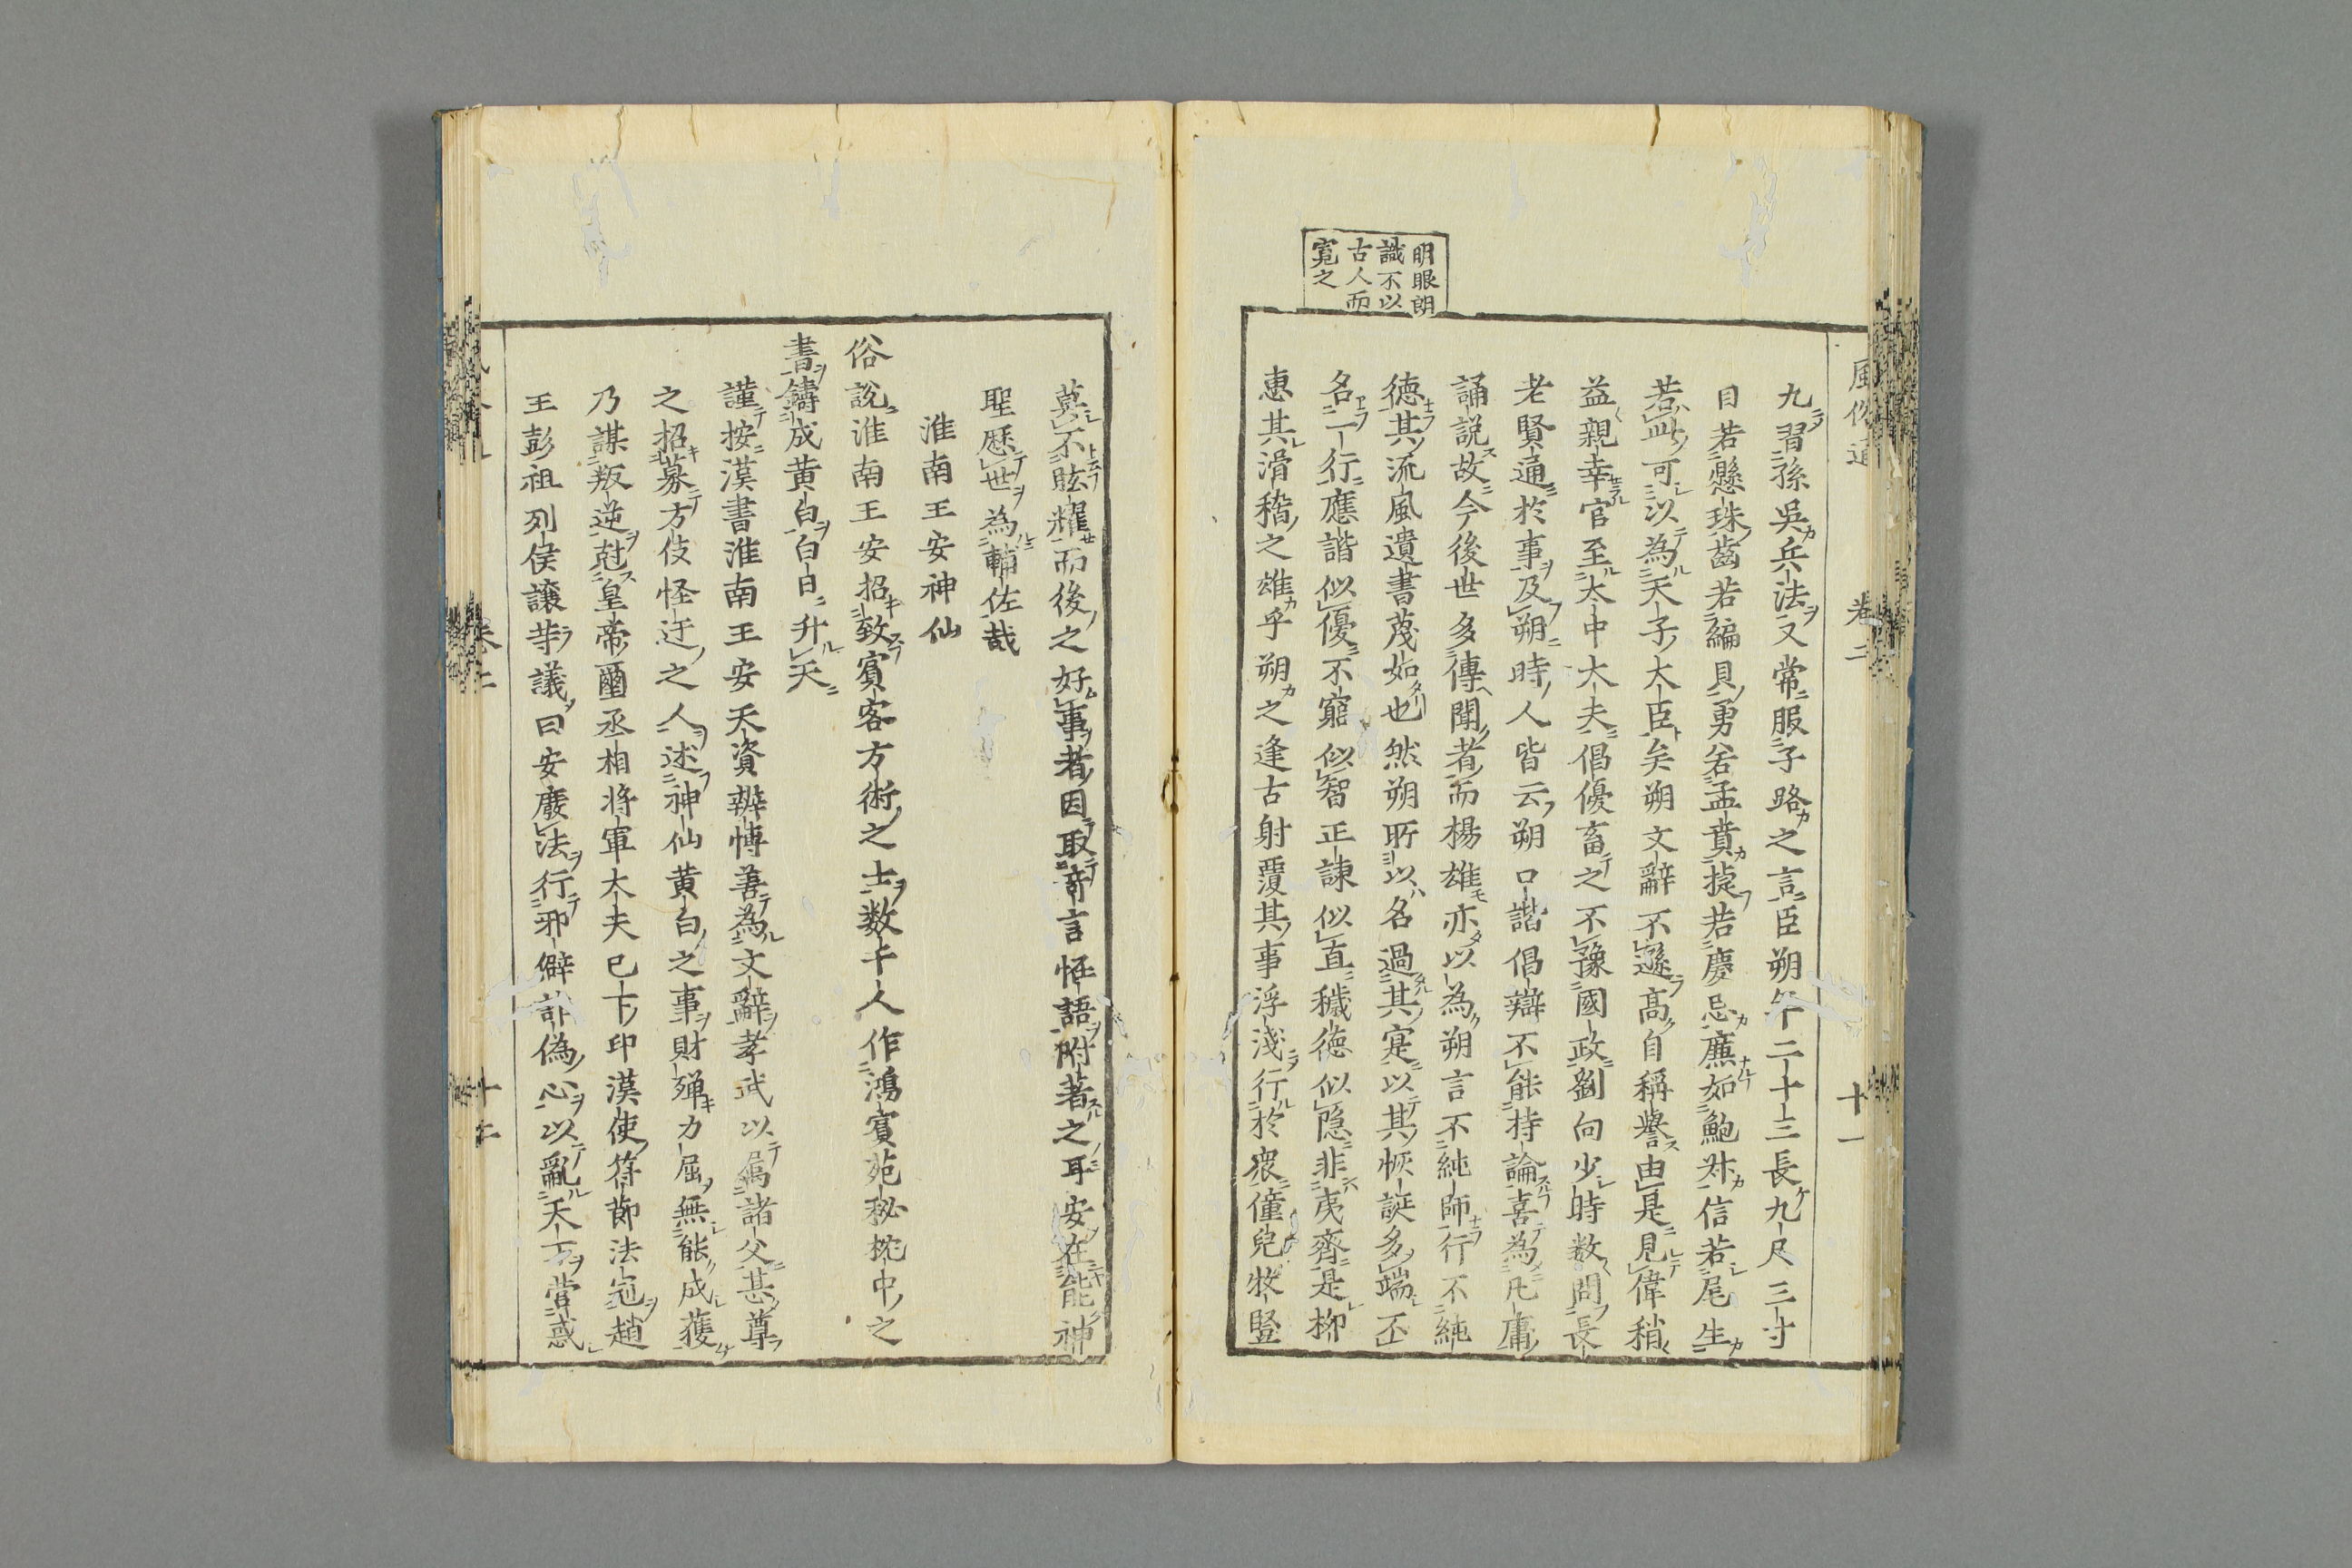 風俗通
卷二
十一
明眼朗
識不以
古人而
寛之
九習孫吳兵法又常服子路之言臣朔年二十三長九尺三寸
目若懸珠齒若編貝勇若孟賁捷若慶忌廉如鮑叔信若尾生
若此可以為天子大臣矣朔文辭不遜高自稱譽由是見偉稍
益親幸官至太中大夫倡優畜之不豫國政劉向少時数問長
老賢通於事及朔時人皆云朔口諧倡辯不能持論喜為凡庸
誦説故今後世多傳聞者而楊雄亦以為朔言不純師行不純
徳其流風遺書蔑如也然朔所以名過其寔以其恢誕多端不
名一行應諧似優不窮似智正諫似直穢徳似隠非夷齊是栁
惠其滑稽之雄乎朔之逢古射覆其事浮淺行於衆僮兒牧豎
莫不眩耀而後之好事者因取奇言恠語附著之耳安在能神
聖歴世為輔佐哉
淮南王安神仙
俗説淮南王安招致賓客方術之士数千人作鴻寳苑秘枕中之
書鑄成黄白白日升天
謹按漢書淮南王安天資辨博善為文辭孝武以属諸父甚尊
之招募方伎怪迂之人述神仙黄白之事財殫力屈無能成獲
乃謀叛逆尅皇帝璽丞相將軍大夫已下印漢使符節法冠趙
王彭祖列侯讓等議曰安廢法行邪僻詐偽心以亂天下營惑
卷二
十二